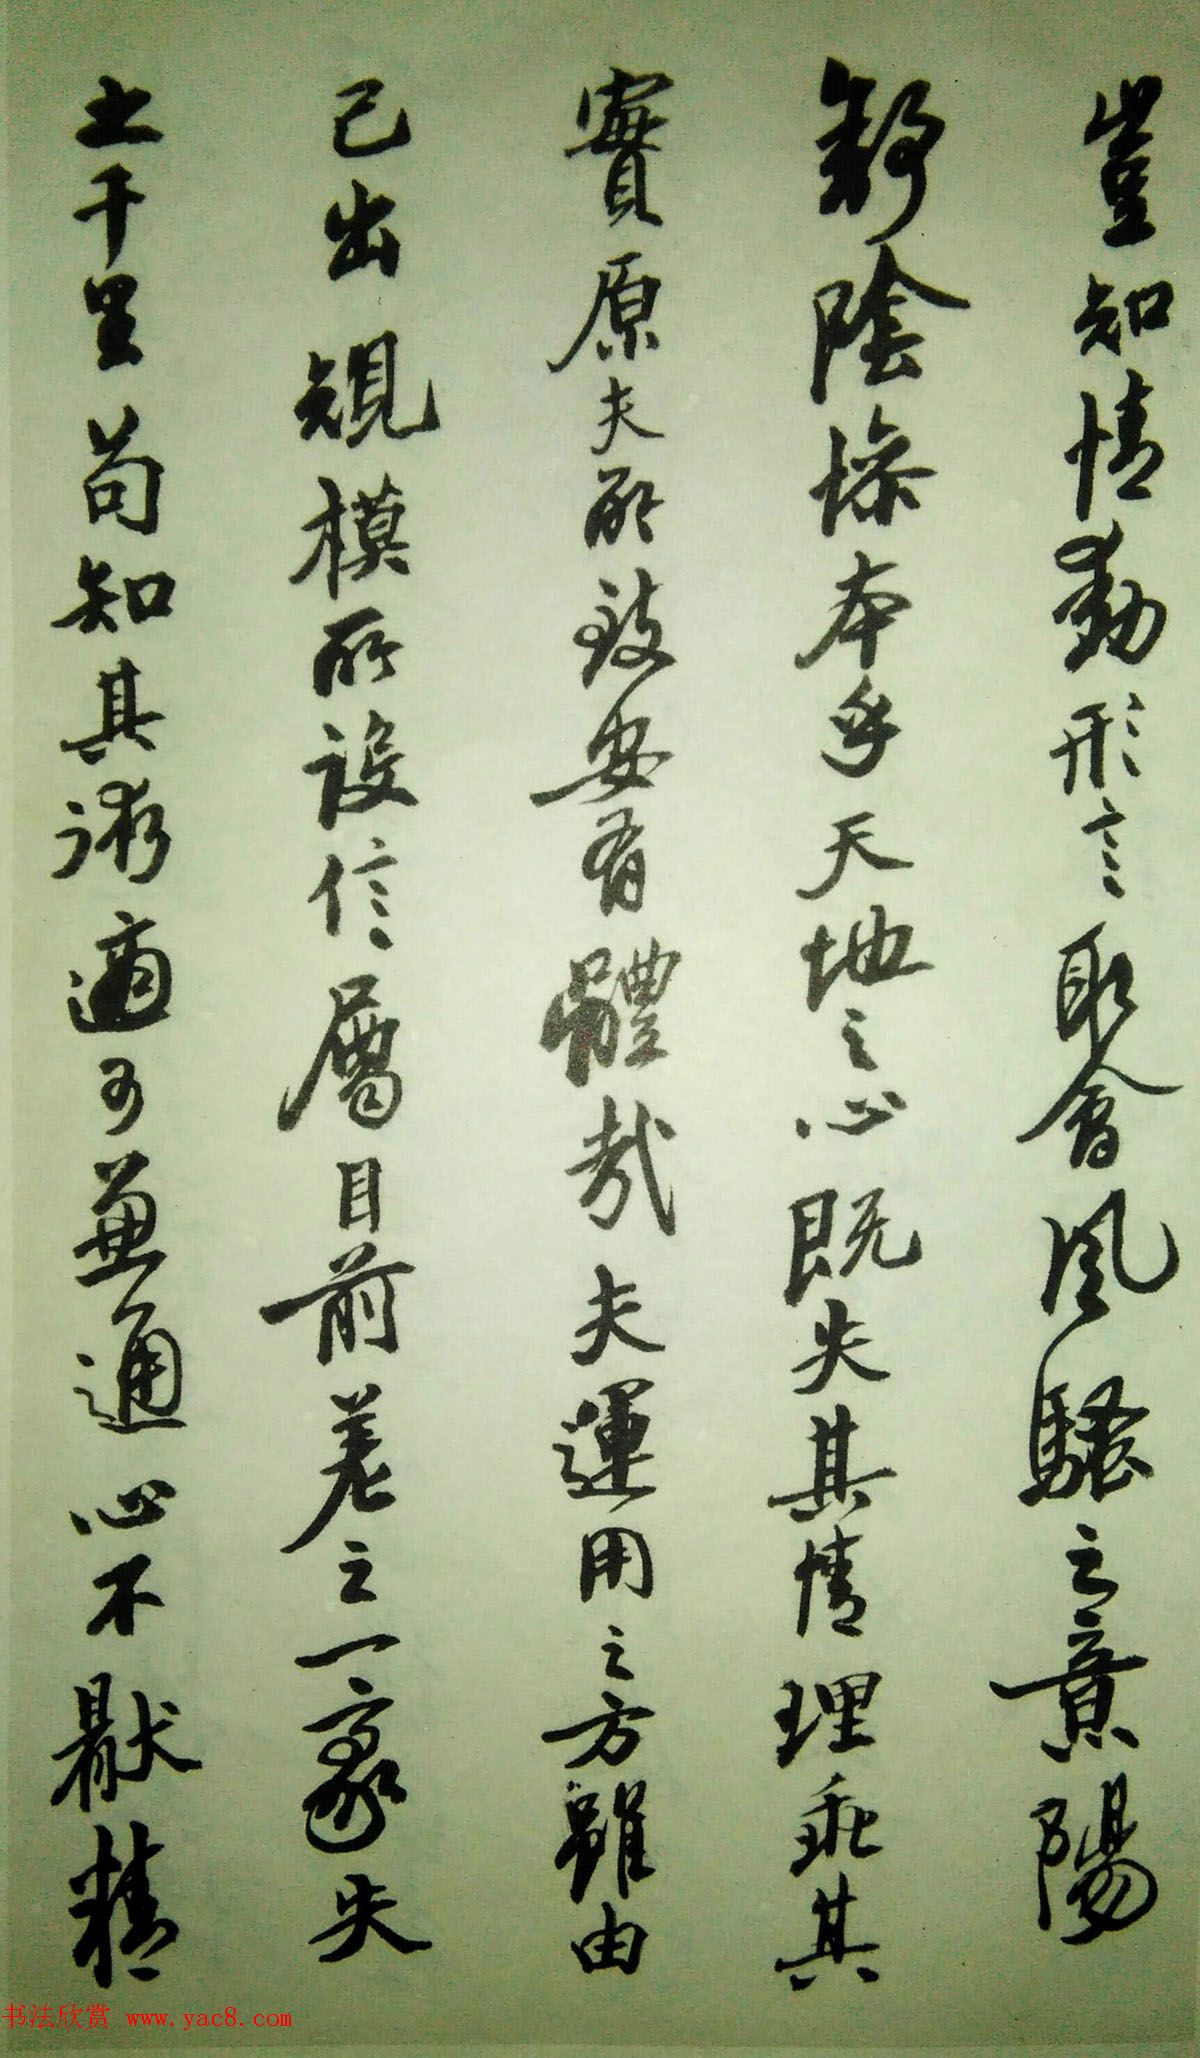 豈知情動形言取會風騷之意陽
舒陰慘本乎天地之心既失其情理乖其
實原夫所致安有體哉夫運用之方雖由
己出規模所設信屬目前差之一豪失
之千里苟知其術適可兼通心不厭精
书法欣赏 www.yac8.com